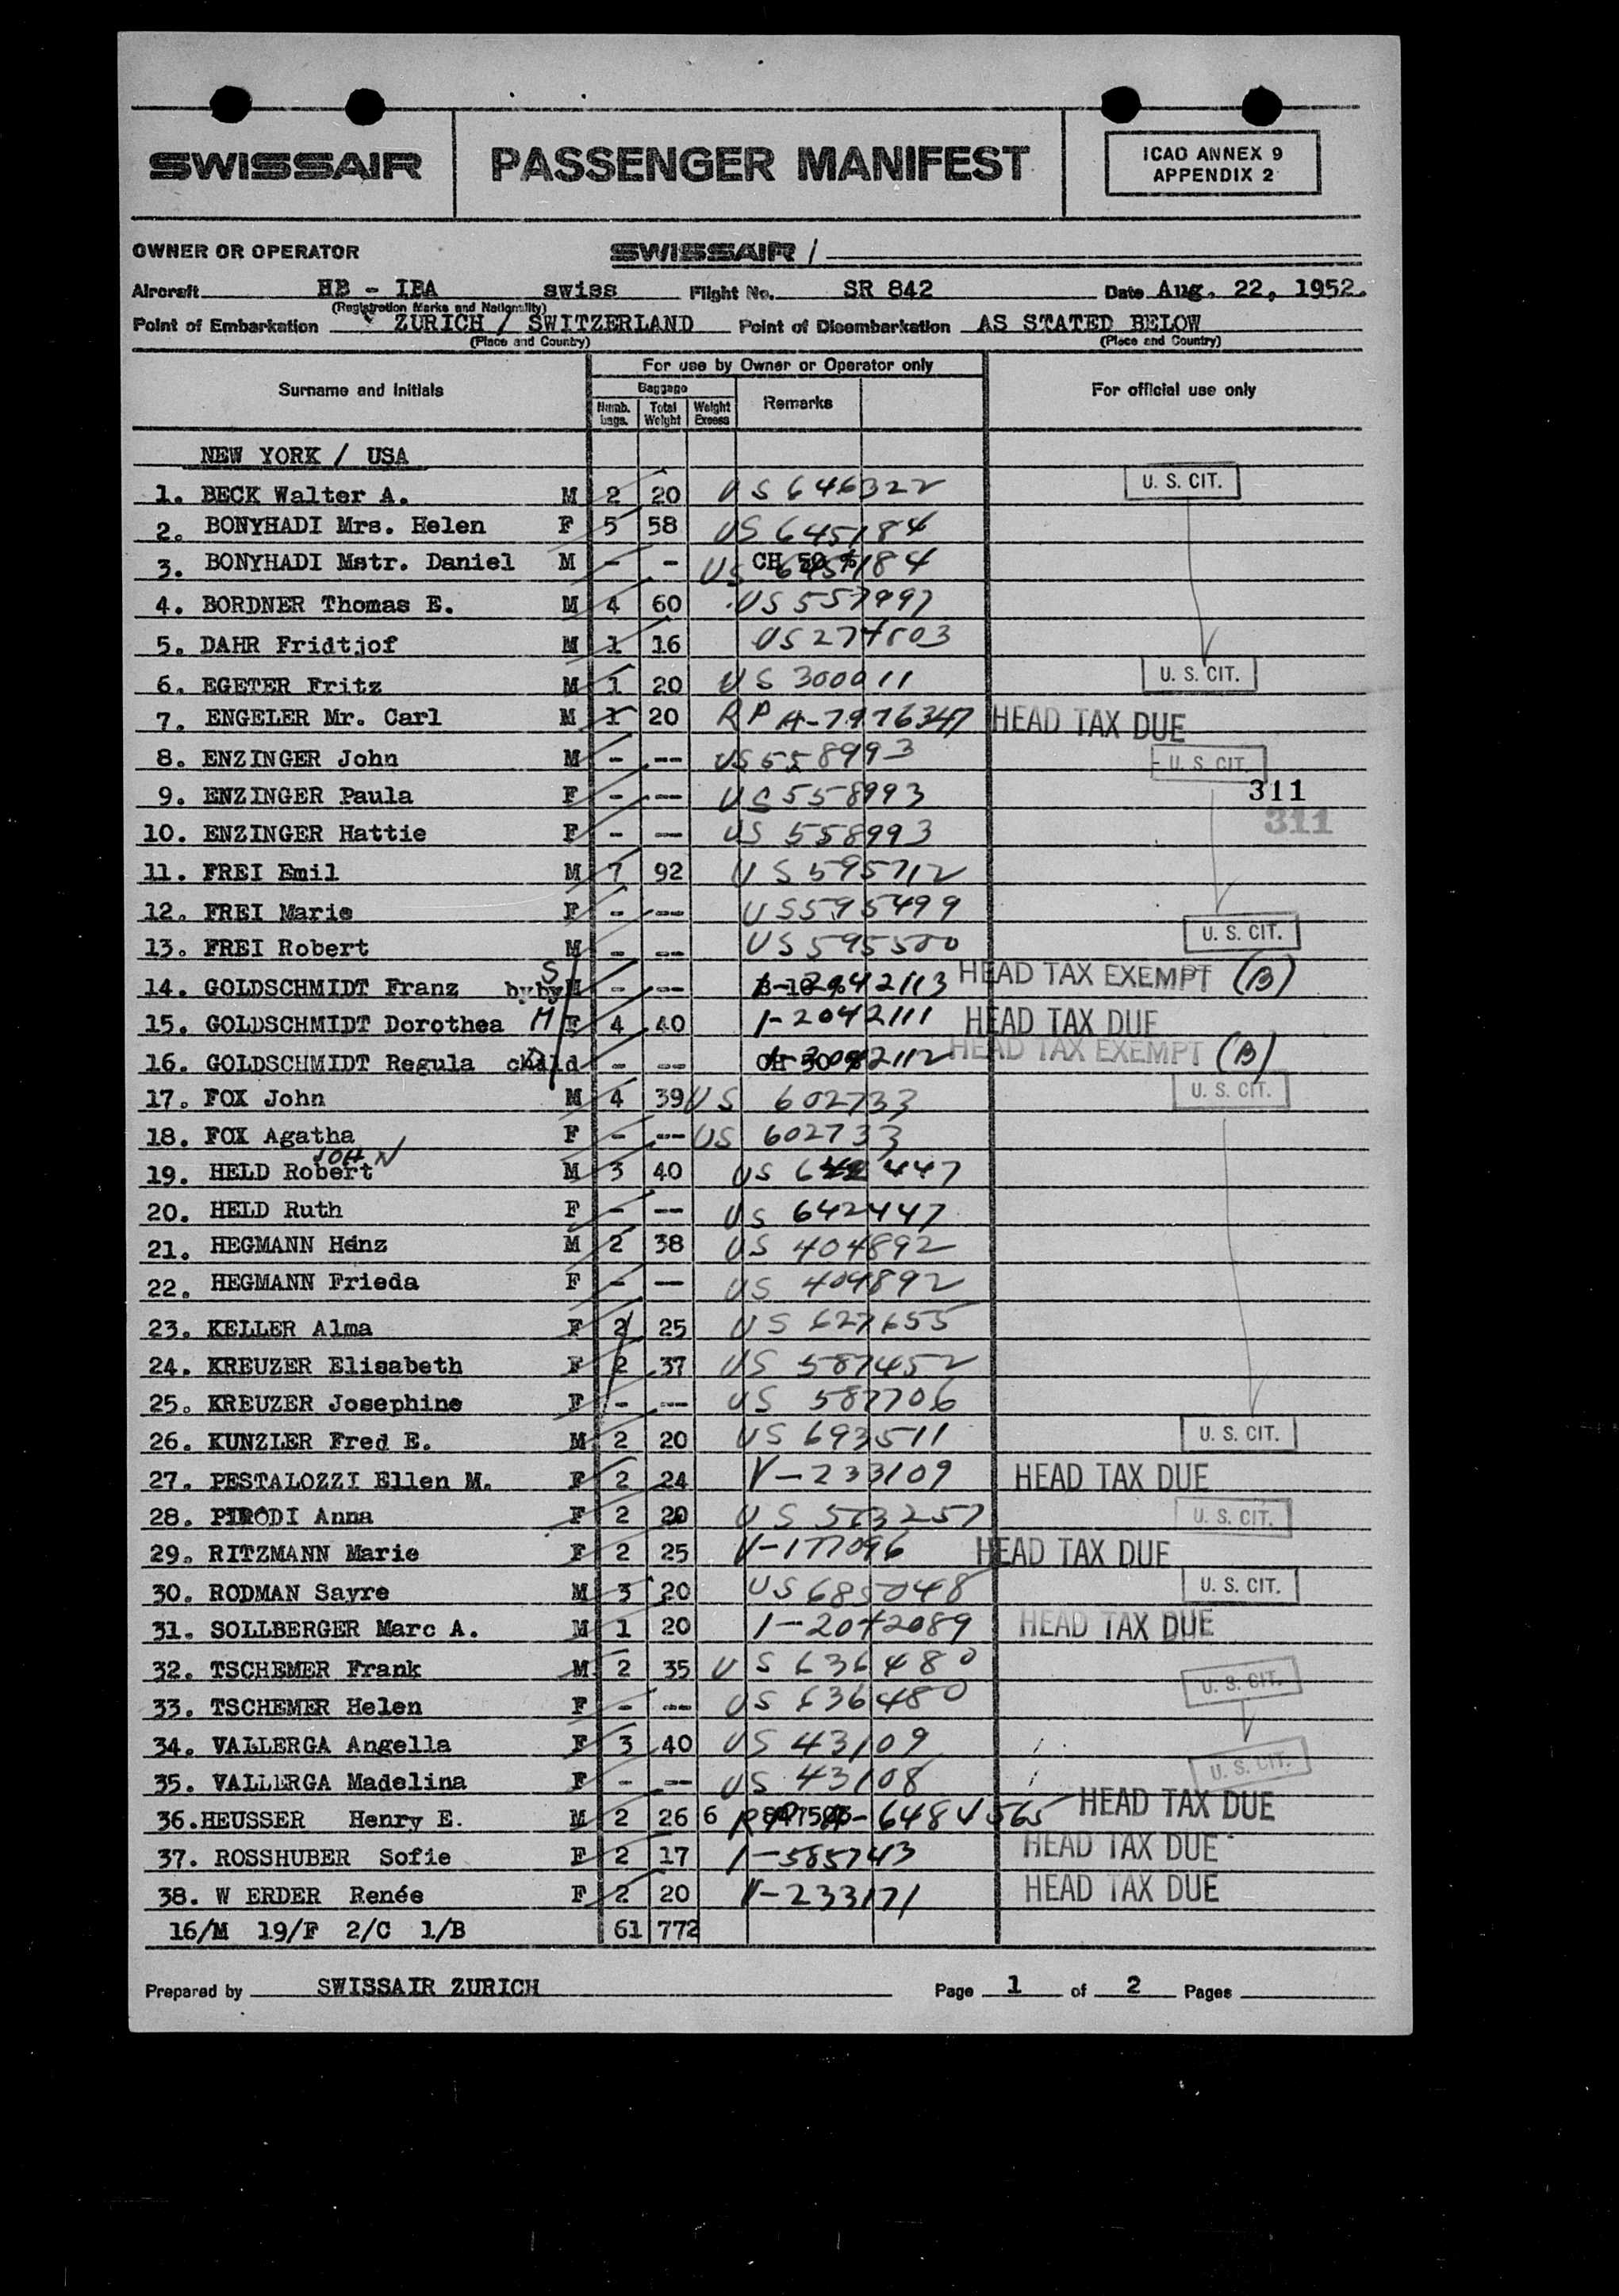 SWISSAIR PASSENGER MANIFEST ICAO ANNEX 9
APPENDIX 2
OWNER OR OPERATOR SWISSAIR /
Aircraft HB - IBA swiss Flight No. SR 842 Date Aug. 22, 1952.
(Registration Marks and Nationality)
Point of Embarkation ZURICH / SWITZERLAND Point of Disembarkation AS STATED BELOW
(Place and Country) (Place and Country)
For use by Owner or Operator only
Surname and Initials Baggage Remarks For official use only
Numb. bags. Total Weight Weight Excess
NEW YORK / USA
1. BECK Walter A. M 2 20 US 646322 U. S. CIT.
2. BONYHADI Mrs. Helen F 5 58 US 645184
3. BONYHADI Mstr. Daniel M - - CH 50 % US 645184
4. BORDNER Thomas E. M 4 60 US 557997
5. DAHR Fridtjof M 1 16 US 274503
6. EGETER Fritz M 1 20 US 300011 U. S. CIT.
7. ENGELER Mr. Carl M 1 20 RP A-7976347 HEAD TAX DUE
8. ENZINGER John M - -- US 558993 U. S. CIT.
9. ENZINGER Paula F - -- US 558993 311
10. ENZINGER Hattie F - -- US 558993 311
11. FREI Emil M 7 92 US 595712
12. FREI Marie F - -- US 595499
13. FREI Robert M - -- US 595500 U. S. CIT.
14. GOLDSCHMIDT Franz byby S M - -- 2042113 HEAD TAX EXEMPT (B)
15. GOLDSCHMIDT Dorothea M F 4 40 I-2042111 HEAD TAX DUE
16. GOLDSCHMIDT Regula child - -- 2042112 HEAD TAX EXEMPT (B)
17. FOX John M 4 39 US 602733 U. S. CIT.
18. FOX Agatha F - -- US 602733
JOHN
19. HELD Robert M 3 40 US 642447
20. HELD Ruth F - -- US 642447
21. HEGMANN Heinz M 2 38 US 404892
22. HEGMANN Frieda F - -- US 404892
23. KELLER Alma F 2 25 US 627655
24. KREUZER Elisabeth F 2 37 US 587452
25. KREUZER Josephine F - -- US 587706
26. KUNZLER Fred E. M 2 20 US 693511 U. S. CIT.
27. PESTALOZZI Ellen M. F 2 24 V-233109 HEAD TAX DUE
28. PIRODI Anna F 2 20 US 563257 U. S. CIT.
29. RITZMANN Marie F 2 25 V-177096 HEAD TAX DUE
30. RODMAN Sayre M 3 20 US 685048 U. S. CIT.
31. SOLLBERGER Marc A. M 1 20 I-2042089 HEAD TAX DUE
32. TSCHEMER Frank M 2 35 US 636480 U. S. CIT.
33. TSCHEMER Helen F - -- US 636480
34. VALLERGA Angella F 3 40 US 43109
35. VALLERGA Madelina F - -- US 43108 U. S. CIT.
36. HEUSSER Henry E. M 2 26 6 HEAD TAX DUE
37. ROSSHUBER Sofie F 2 17 I-585743 HEAD TAX DUE
38. W ERDER Renée F 2 20 V-233171 HEAD TAX DUE
16/M 19/F 2/C 1/B 61 772
Prepared by SWISSAIR ZURICH Page 1 of 2 Pages